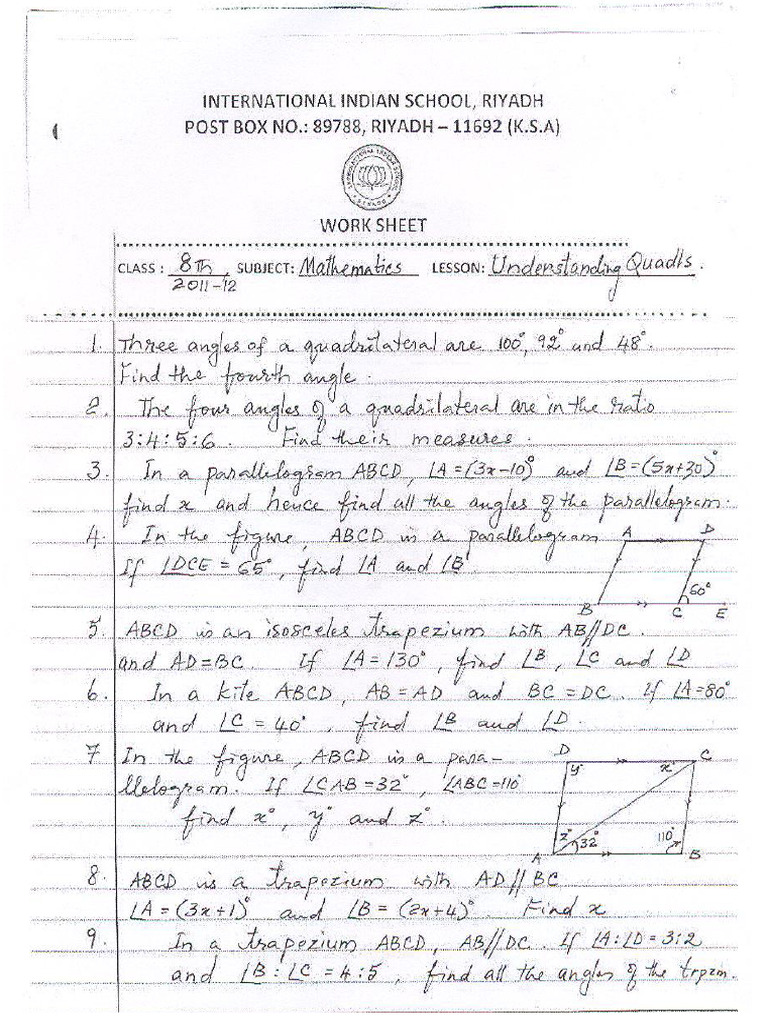 INTERNATIONAL INDIAN SCHOOL, RIYADH
POST BOX NO.: 89788, RIYADH – 11692 (K.S.A)
WORK SHEET
CLASS : 8Th, SUBJECT: Mathematics LESSON: Understanding Quadls.
2011-12
1. Three angles of a quadrilateral are 100°, 92° and 48°.
Find the fourth angle.
2. The four angles of a quadrilateral are in the ratio
3:4:5:6. Find their measures.
3. In a parallelogram ABCD, ∠A = (3x-10)° and ∠B = (5x+30)°
find x and hence find all the angles of the parallelogram.
4. In the figure, ABCD is a parallelogram
If ∠DCE = 65°, find ∠A and ∠B
A D
60°
B C E
5. ABCD is an isosceles trapezium with AB//DC.
and AD=BC. If ∠A=130°, find ∠B, ∠C and ∠D
6. In a kite ABCD, AB = AD and BC = DC. If ∠A=80°
and ∠C = 40°, find ∠B and ∠D.
7 In the figure, ABCD is a para-
llelogram. If ∠CAB=32°, ∠ABC=110°
find x°, y° and z°.
D C
y° x°
z° 32° 110°
A B
8. ABCD is a trapezium with AD//BC
∠A = (3x+1)° and ∠B = (2x+4)°. Find x
9. In a trapezium ABCD, AB//DC. If ∠A:∠D=3:2
and ∠B:∠C = 4:5, find all the angles of the trpzm.